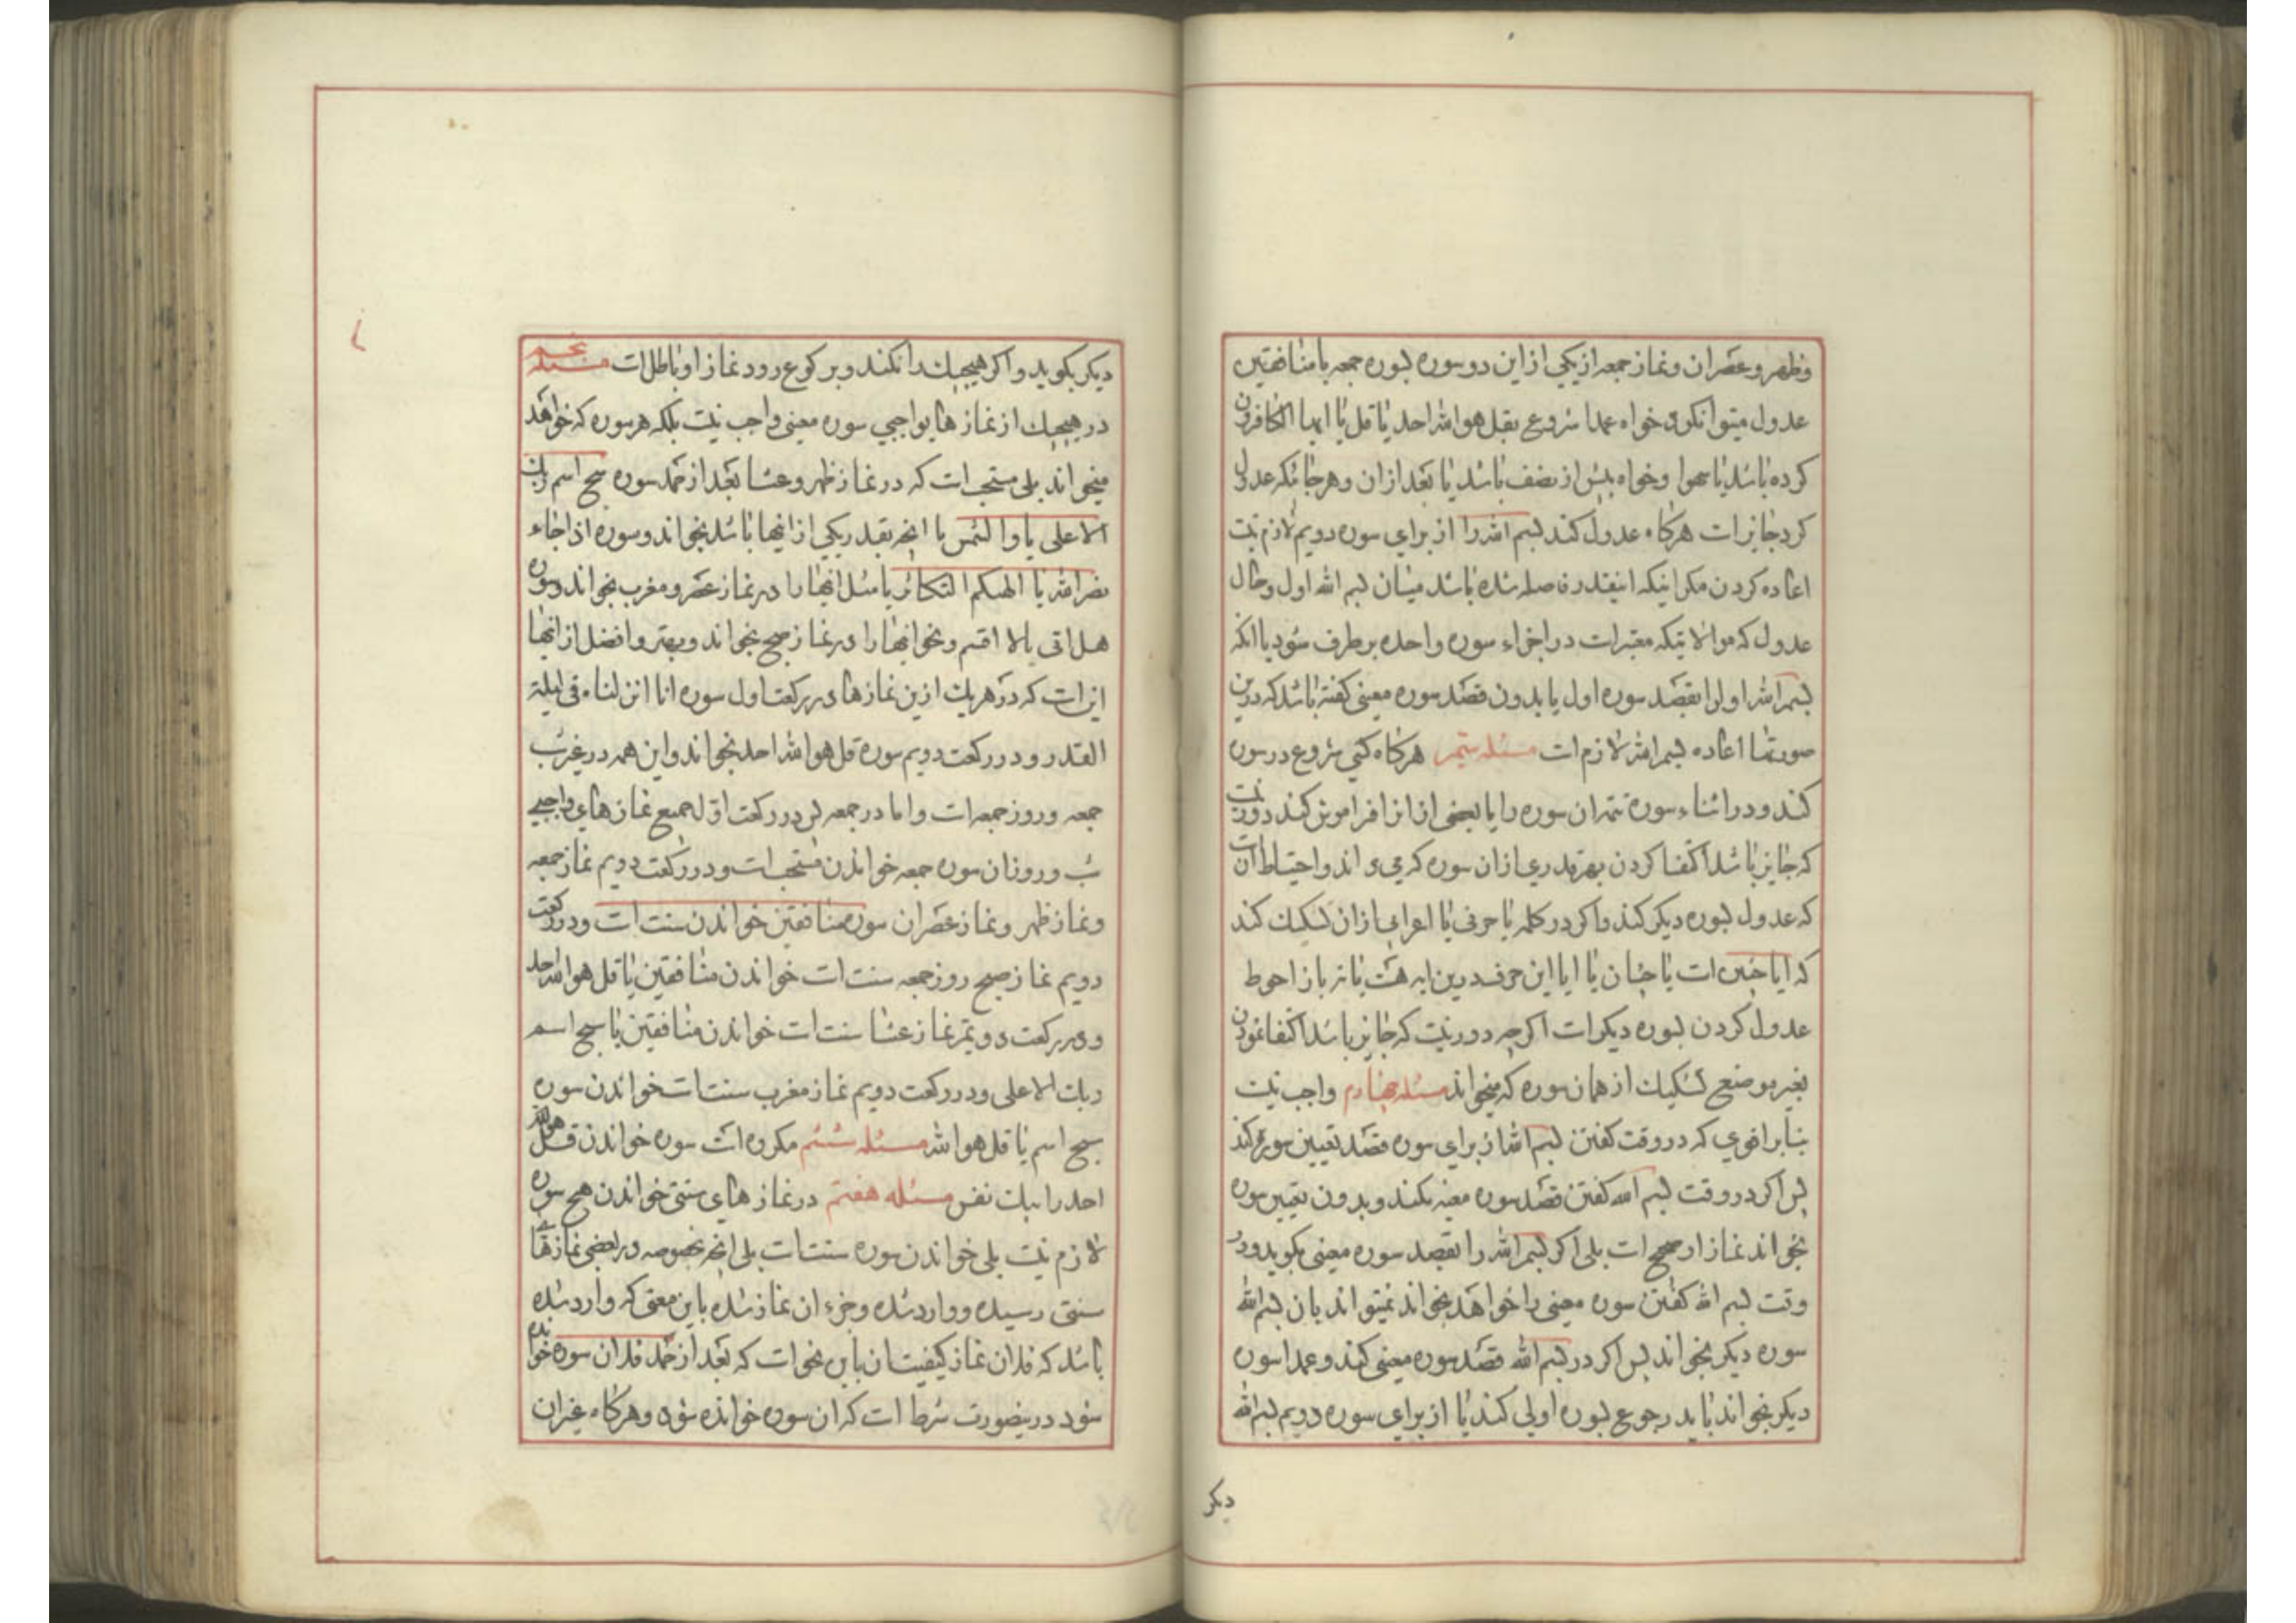 وظهر و عصر ان و نماز جمعه از یکی از این دو سوره بسوره جمعه یا منافقین
عدول میتوان کرد خواه عمدا شروع بقل هو الله احد یا قل یا ایها الکافرون
کرده باشد یا سهوا و خواه پیش از نصف باشد یا بعد از ان و هر جائیکه عدول
کرد جایز است هرکاه عدول کند بسم الله را از برای سوره دویم لازم نیست
اعاده کردن مکر اینکه اینقدر فاصله شده باشد میان بسم الله اول و حال
عدول که موالاتیکه معتبر است در اجزاء سوره واحده برطرف شود یا انکه
بسم الله اول را بقصد سوره اول یا بدون قصد سوره معینی کفته باشد که درین
صورتها اعاده بسم الله لازم است مسئله سیم هرکاه کسی شروع در سوره
کند و در اثناء سوره تتمه ان سوره را یا بعضی از انرا فراموش کند دور نیست
که جایز باشد اکتفا کردن بهر قدری از ان سوره که می داند و احتیاط انست
که عدول بسوره دیکر کند و اکر در کلمه یا حرفی یا اعرابی از ان تشکیک کند
که ایا چنین است یا چنان یا ایا این حرف درین ایه هست یا نه باز احوط
عدول کردن بسوره دیکر است اکرچه دور نیست که جایز باشد اکتفا نمودن
بغیر موضع تشکیک از همان سوره که میخواند مسئله چهارم واجب نیست
بنابر اقوی که در وقت کفتن بسم الله از برای سوره قصد تعیین سوره کند
پس اکر در وقت بسم الله کفتن قصد سوره معینه نکند و بدون تعیین سوره
بخواند نماز او صحیح است بلی اکر بسم الله را بقصد سوره معینی بکوید و در
وقت بسم الله کفتن سوره معینی را خواهد بخواند نمیتواند بان بسم الله
سوره دیکر بخواند پس اکر در بسم الله قصد سوره معینی کند و عمدا سوره
دیکر بخواند باید رجوع بسوره اولی کند یا از برای سوره دویم بسم الله
دیکر
دیکر بکوید و اکر هیچیک را نکند و برکوع رود نماز او باطل است مسئله پنجم
در هیچیک از نمازهای واجبی سوره معینی واجب نیست بلکه هر سوره که خواهد
میخواند بلی مستحب است که در نماز ظهر و عشا بعد از حمد سوره سبح اسم ربک
الاعلی یا والشمس یا انچه بقدر یکی از اینها باشد بخواند و سوره اذا جاء
نصر الله یا الهیکم التکاثر یا مثل انها را در نماز عصر و مغرب بخواند و سوره
هل اتی یا لا اقسم و نحو انها را در نماز صبح بخواند و بهتر و افضل از انها
این است که در هر یک ازین نمازها در رکعت اول سوره انا انزلناه فی لیلة
القدر و در رکعت دویم سوره قل هو الله احد بخواند و این همه در غیر شب
جمعه و روز جمعه است و اما در جمعه پس در رکعت اول جمیع نمازهای واجبی
شب و روز ان سوره جمعه خواندن مستحب است و در رکعت دویم نماز جمعه
و نماز ظهر و نماز عصر ان سوره منافقین خواندن سنت است و در رکعت
دویم نماز صبح روز جمعه سنت است خواندن منافقین یا قل هو الله احد
و در رکعت دویم نماز عشا سنت است خواندن منافقین یا سبح اسم
ربک الاعلی و در رکعت دویم نماز مغرب سنت است خواندن سوره
سبح اسم یا قل هو الله مسئله ششم مکروه است سوره خواندن قل هو الله
احد را بیک نفس مسئله هفتم در نمازهای سنتی خواندن هیچ سوره
لازم نیست بلی خواندن سوره سنت است بلی انچه بخصوصه در بعضی نمازهای
سنتی رسیده و وارد شده و جزء ان نماز شده باین معنی که وارد شده
باشد که فلان نماز کیفیت ان باین نحو است که بعد از حمد فلان سوره خوانده
شود درینصورت شرط است که ان سوره خوانده شود و هرکاه غیر ان